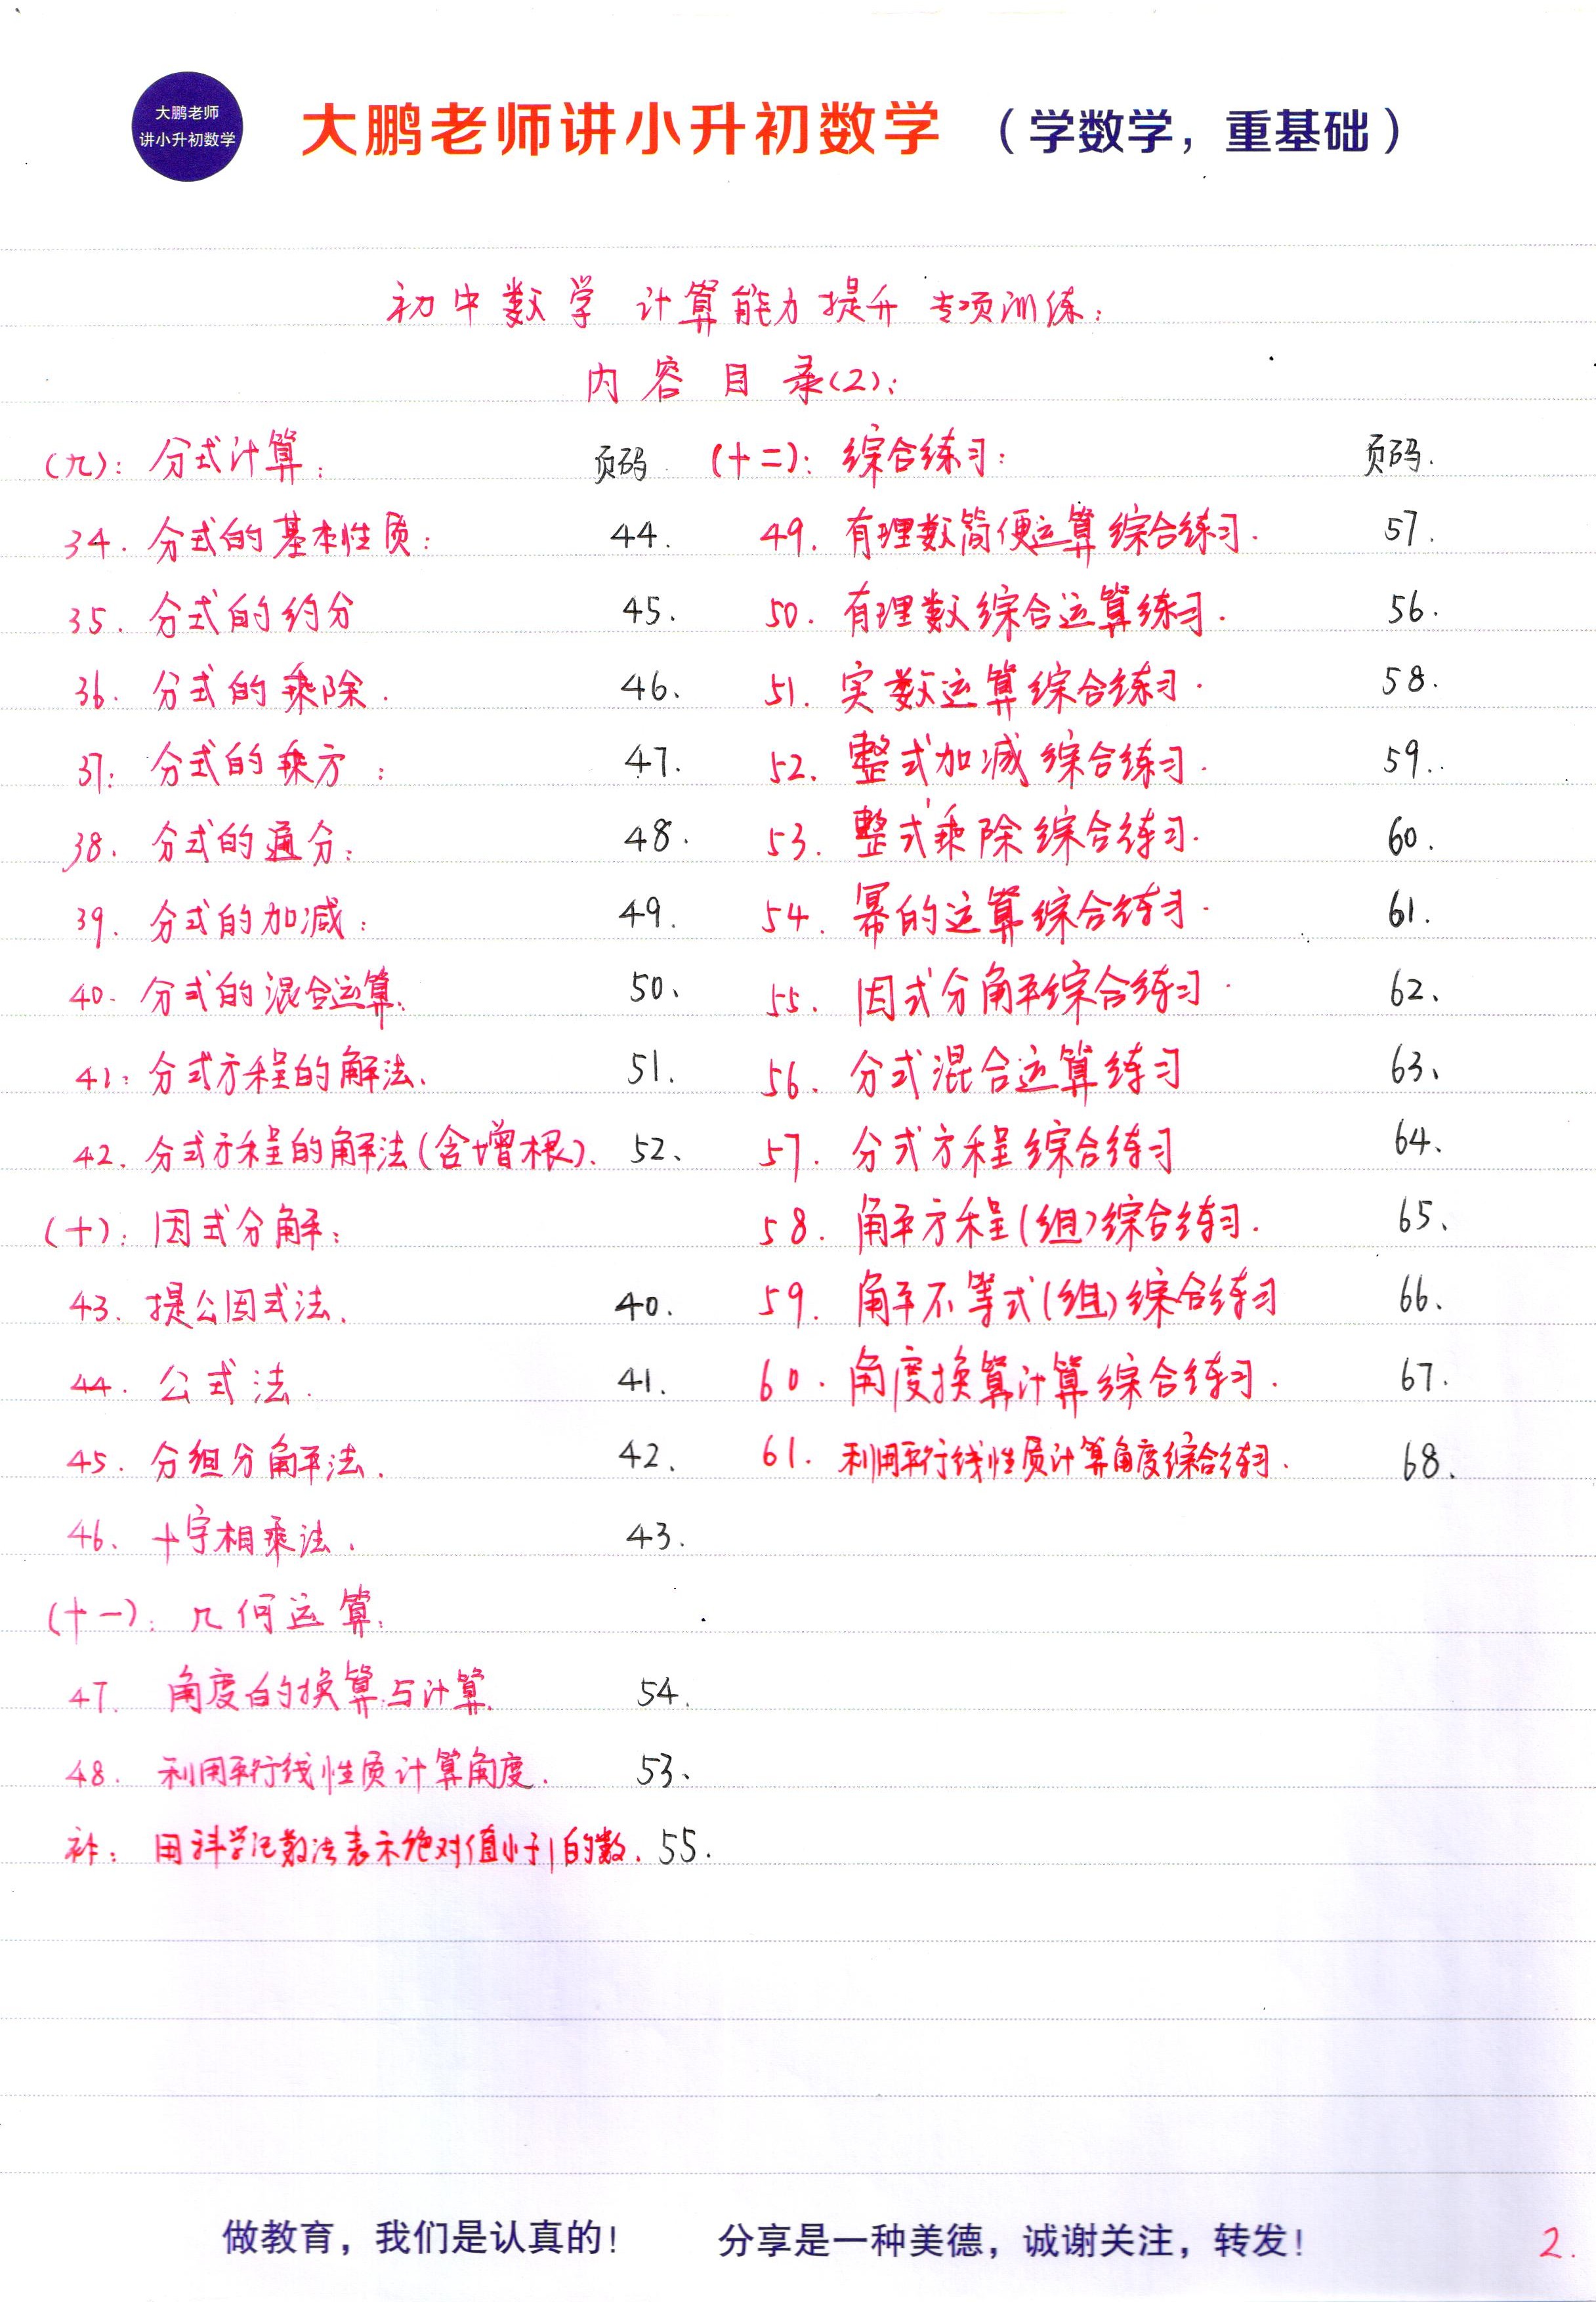 大鹏老师
讲小升初数学
大鹏老师讲小升初数学 (学数学，重基础)
初中数学 计算能力提升 专项训练:
内容目录(2):
(九): 分式计算: 页码
34. 分式的基本性质: 44.
35. 分式的约分 45.
36. 分式的乘除. 46、
37: 分式的乘方: 47.
38. 分式的通分: 48.
39. 分式的加减: 49.
40. 分式的混合运算. 50、
41: 分式方程的解法. 51.
42. 分式方程的解法(含增根). 52、
(十): 因式分解:
43. 提公因式法. 40.
44. 公式法. 41.
45. 分组分解法. 42.
46、 十字相乘法. 43.
(十一): 几何运算:
47. 角度的换算与计算. 54.
48. 利用平行线性质计算角度. 53、
补: 用科学记数法表示绝对值小于1的数. 55.
(十二): 综合练习: 页码.
49. 有理数简便运算综合练习. 57.
50. 有理数综合运算练习. 56.
51. 实数运算综合练习. 58.
52. 整式加减综合练习. 59.
53. 整式乘除综合练习. 60.
54. 幂的运算综合练习. 61.
55. 因式分解综合练习. 62、
56. 分式混合运算练习 63、
57. 分式方程综合练习 64、
58. 解方程(组)综合练习. 65、
59. 解不等式(组)综合练习 66、
60. 角度换算计算综合练习. 67.
61. 利用平行线性质计算角度综合练习. 68.
做教育，我们是认真的! 分享是一种美德，诚谢关注，转发!
2.